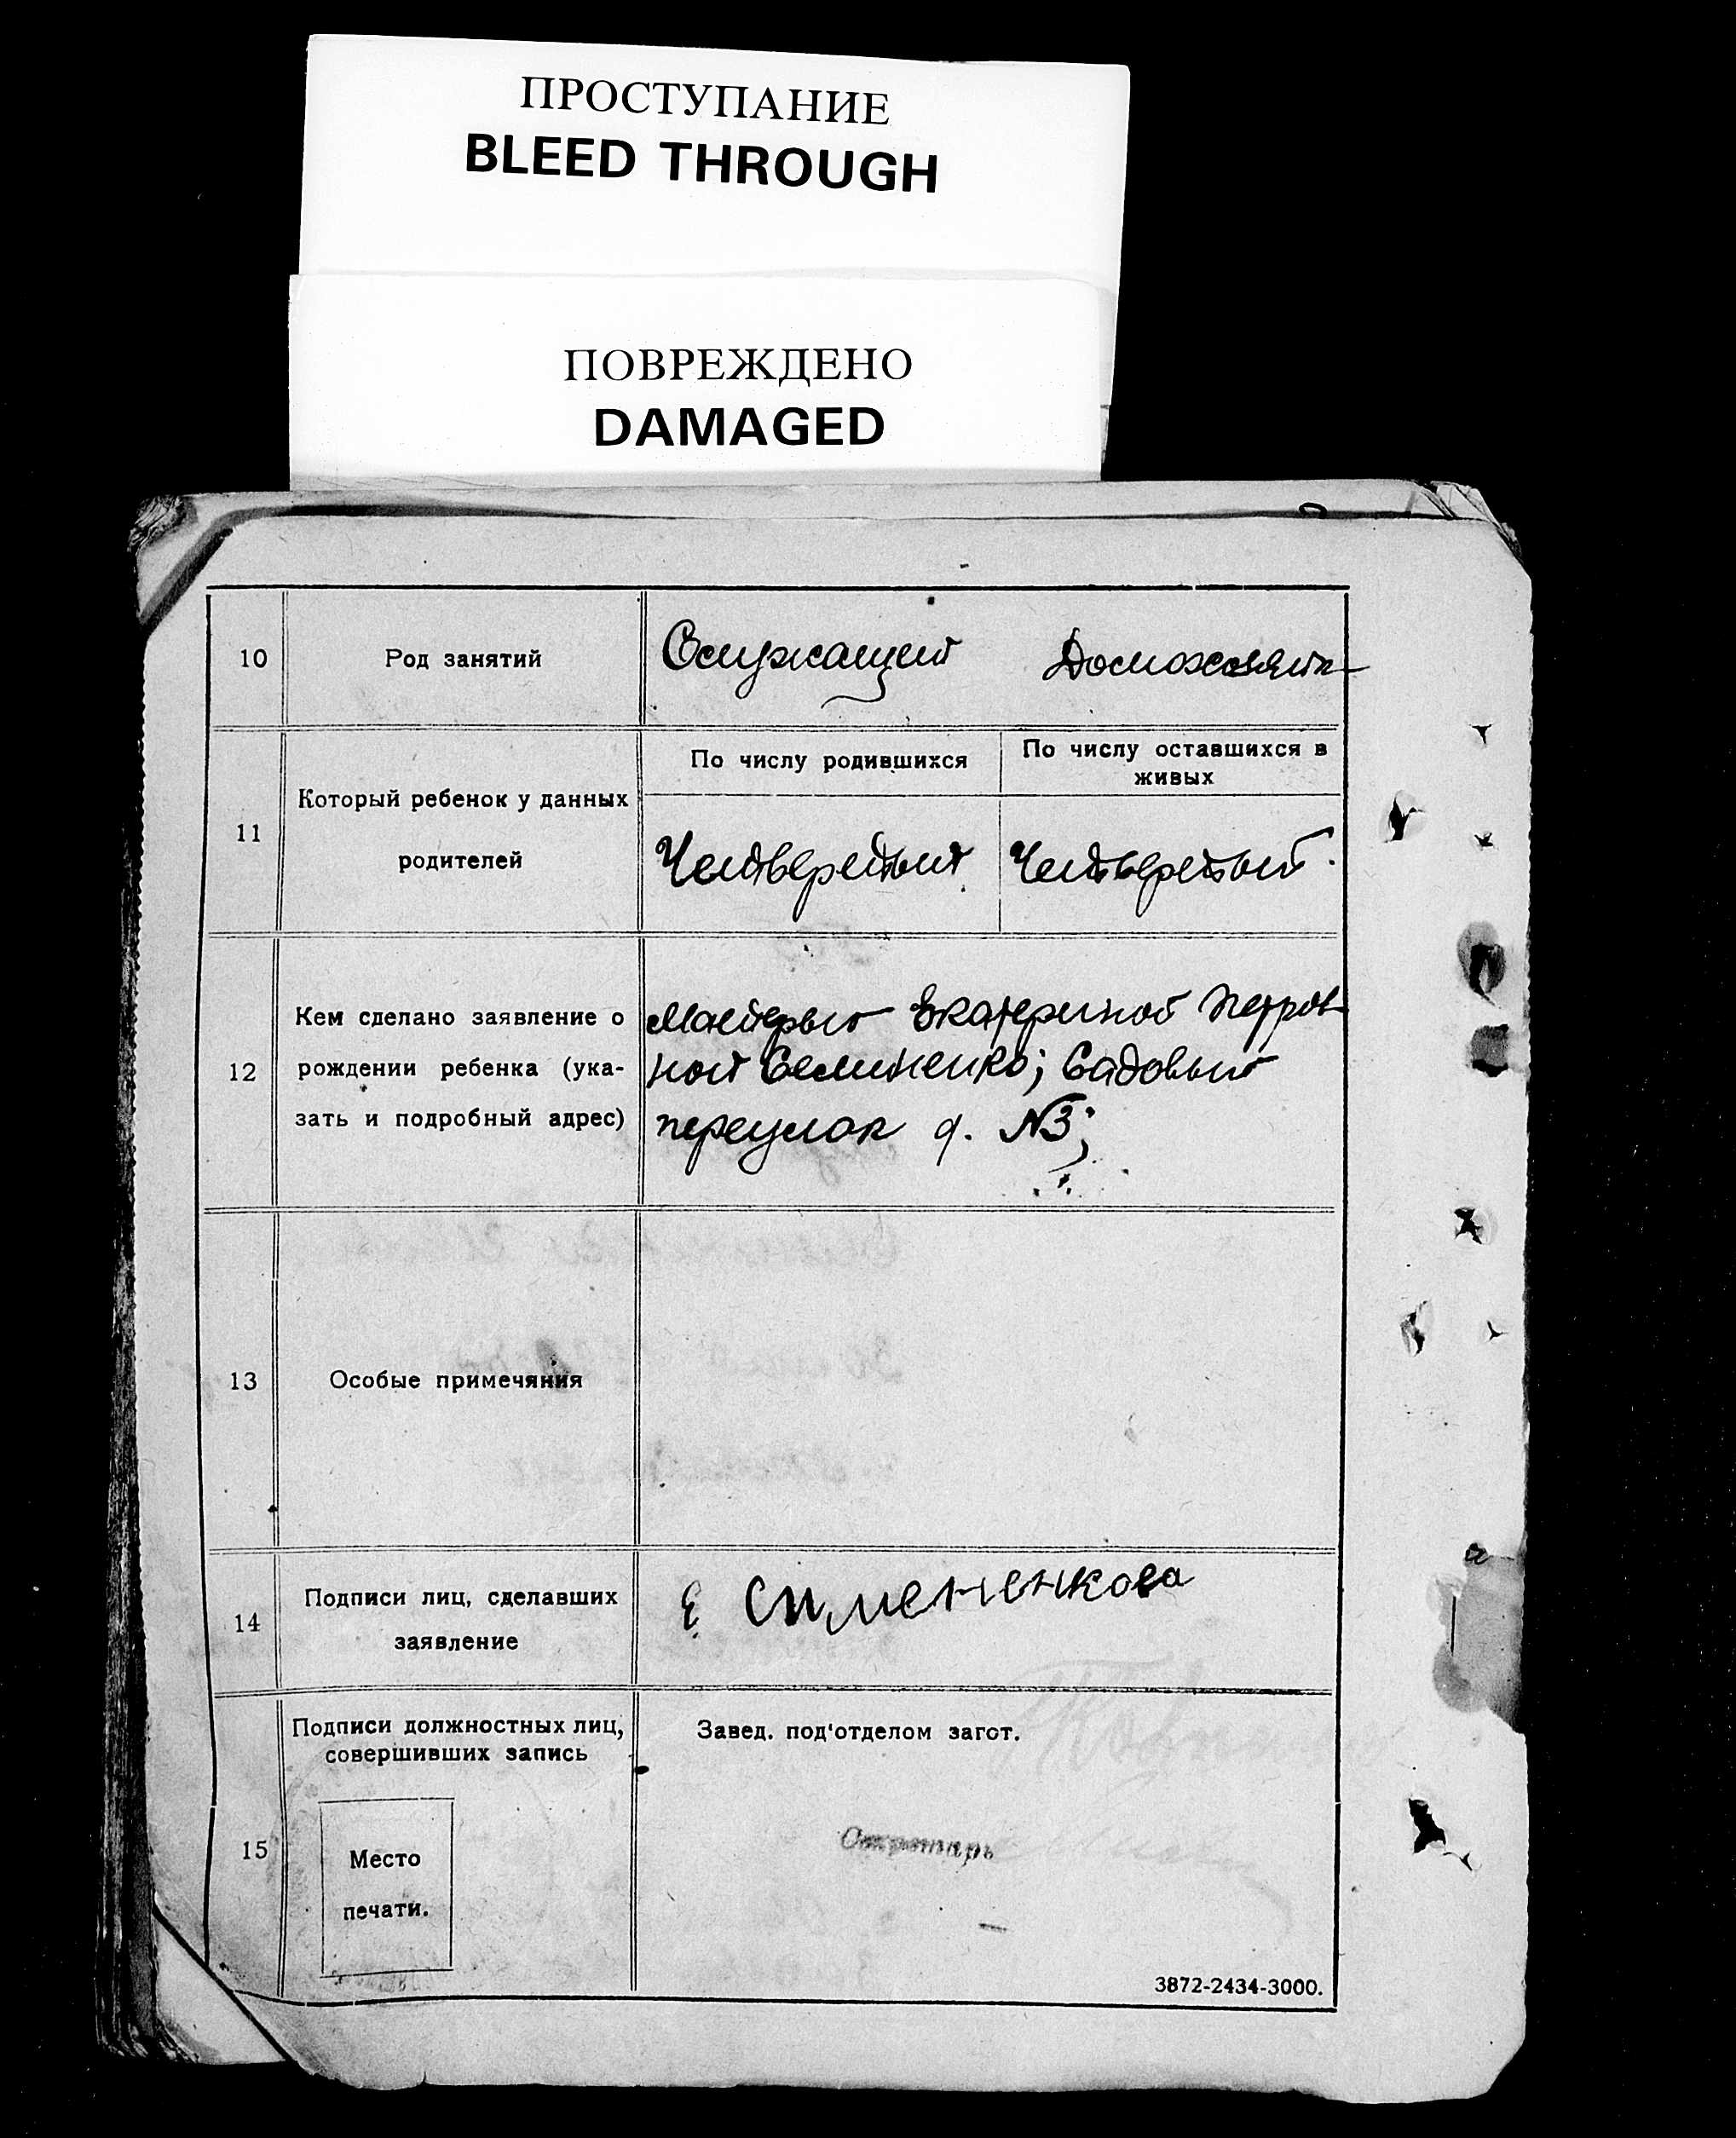 ПРОСТУПАНИЕ
BLEED THROUGH
ПОВРЕЖДЕНО
DAMAGED
10 Род занятий Служащий Домохозяйка
По числу родившихся По числу оставшихся в
живых
11 Который ребенок у данных
родителей
Четвертый Четвертый
12 Кем сделано заявление о
рождении ребенка (ука-
зать и подробный адрес)
Матерью Екатериной Петров-
ной Семиненко; Садовый
переулок д. №3;
13 Особые примечяния
14 Подписи лиц, сделавших
заявление
Е Симененкова
15 Подписи должностных лиц,
совершивших запись
Место
печати.
Завед. под'отделом загот.
Секретарь
3872-2434-3000.